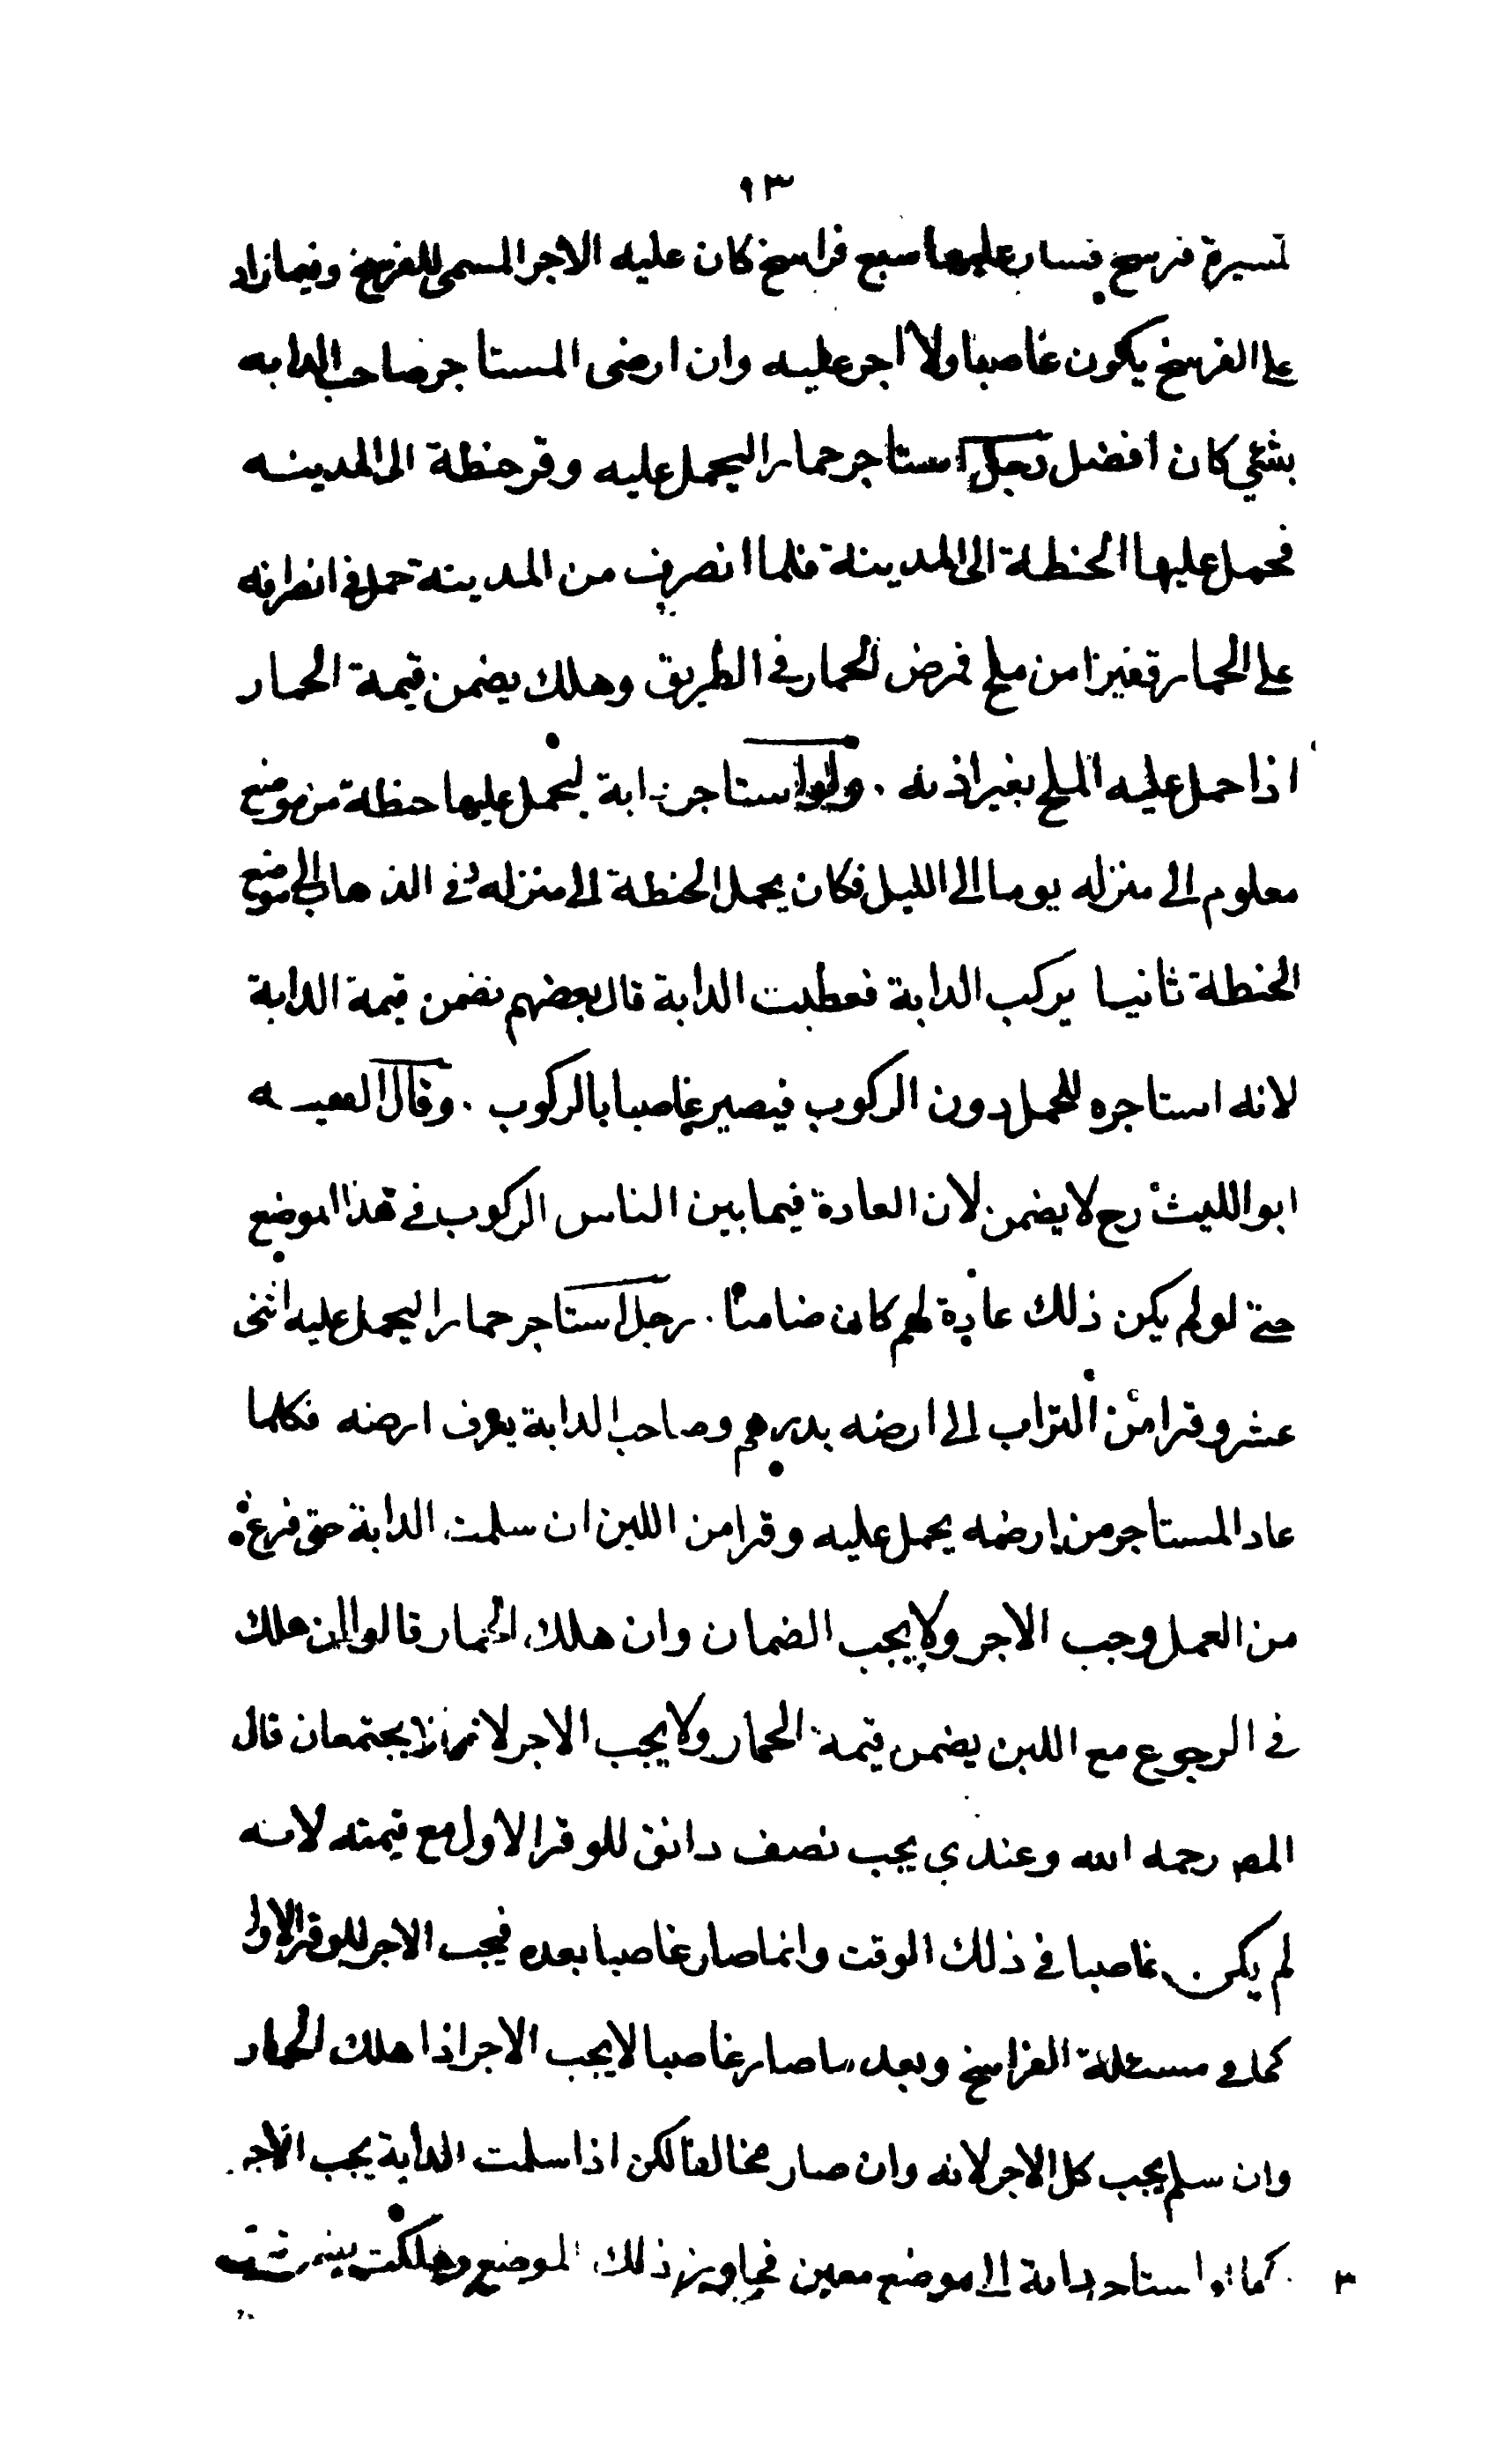 ١٣
لمسيرة فرسخ فسار عليها سبع فراسخ كان عليه الاجر المسمى للفرسخ وفيما زاد
على الفرسخ يكون غاصبا ولا اجر عليه وان ارضى المستاجر صاحب الدابه
بشئ كان افضل رجل استاجر حمارا ليحمل عليه وقر حنطة الى المدينه
فحمل عليها الحنطة الى المدينة فلما انصرف من المدينة حمل في انصرافه
على الحمار قفيزا من ملح فمرض الحمار في الطريق وهلك يضمن قيمة الحمار
اذا حمل عليه الملح بغير اذنه . ولو استاجر دابة ليحمل عليها حنطة من موضع
معلوم الى منزله يوما الى الليل فكان يحمل الحنطة الى منزله وفى الذهاب الى موضع
الحنطة ثانيا يركب الدابة فعطبت الدابة قال بعضهم يضمن قيمة الدابة
لانه استاجره للحمل دون الركوب فيصير غاصبا بالركوب . وقال الفقيه
ابو الليث رح لا يضمن لان العادة فيما بين الناس الركوب في هذا الموضع
حتى لو لم يكن ذلك عادة لهم كان ضامنا . رجل استاجر حمارا ليحمل عليه اثنى
عشر وقرا من التراب الى ارضه بدرهم وصاحب الدابة يعرف ارضه فكلما
عاد المستاجر من ارضه يحمل عليه وقرا من اللبن ان سلمت الدابة حتى فرغ
من العمل وجب الاجر ولا يجب الضمان وان هلك الحمار قالوا ان هلك
في الرجوع مع اللبن يضمن قيمة الحمار ولا يجب الاجر لانهما لا يجتمعان قال
المصـ رحمه الله وعندي يجب نصف دانق للوقر الاول مع قيمته لانه
لم يكن غاصبا في ذلك الوقت وانما صار غاصبا بعده فيجب الاجر للوقر الاول
كما في مسئلة الفراسخ وبعد ما صار غاصبا لا يجب الاجر اذا هلك الحمار
وان سلم يجب كل الاجر لانه وان صار مخالفا لكن اذا سلمت الدابة يجب الاجر
كما لو استاجر دابة الى موضع معين فجاوز ذلك الموضع وهلكت
٣